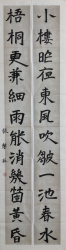 小樓昨夜東風吹皺一池春水
梧桐更兼細雨能消幾箇黃昏